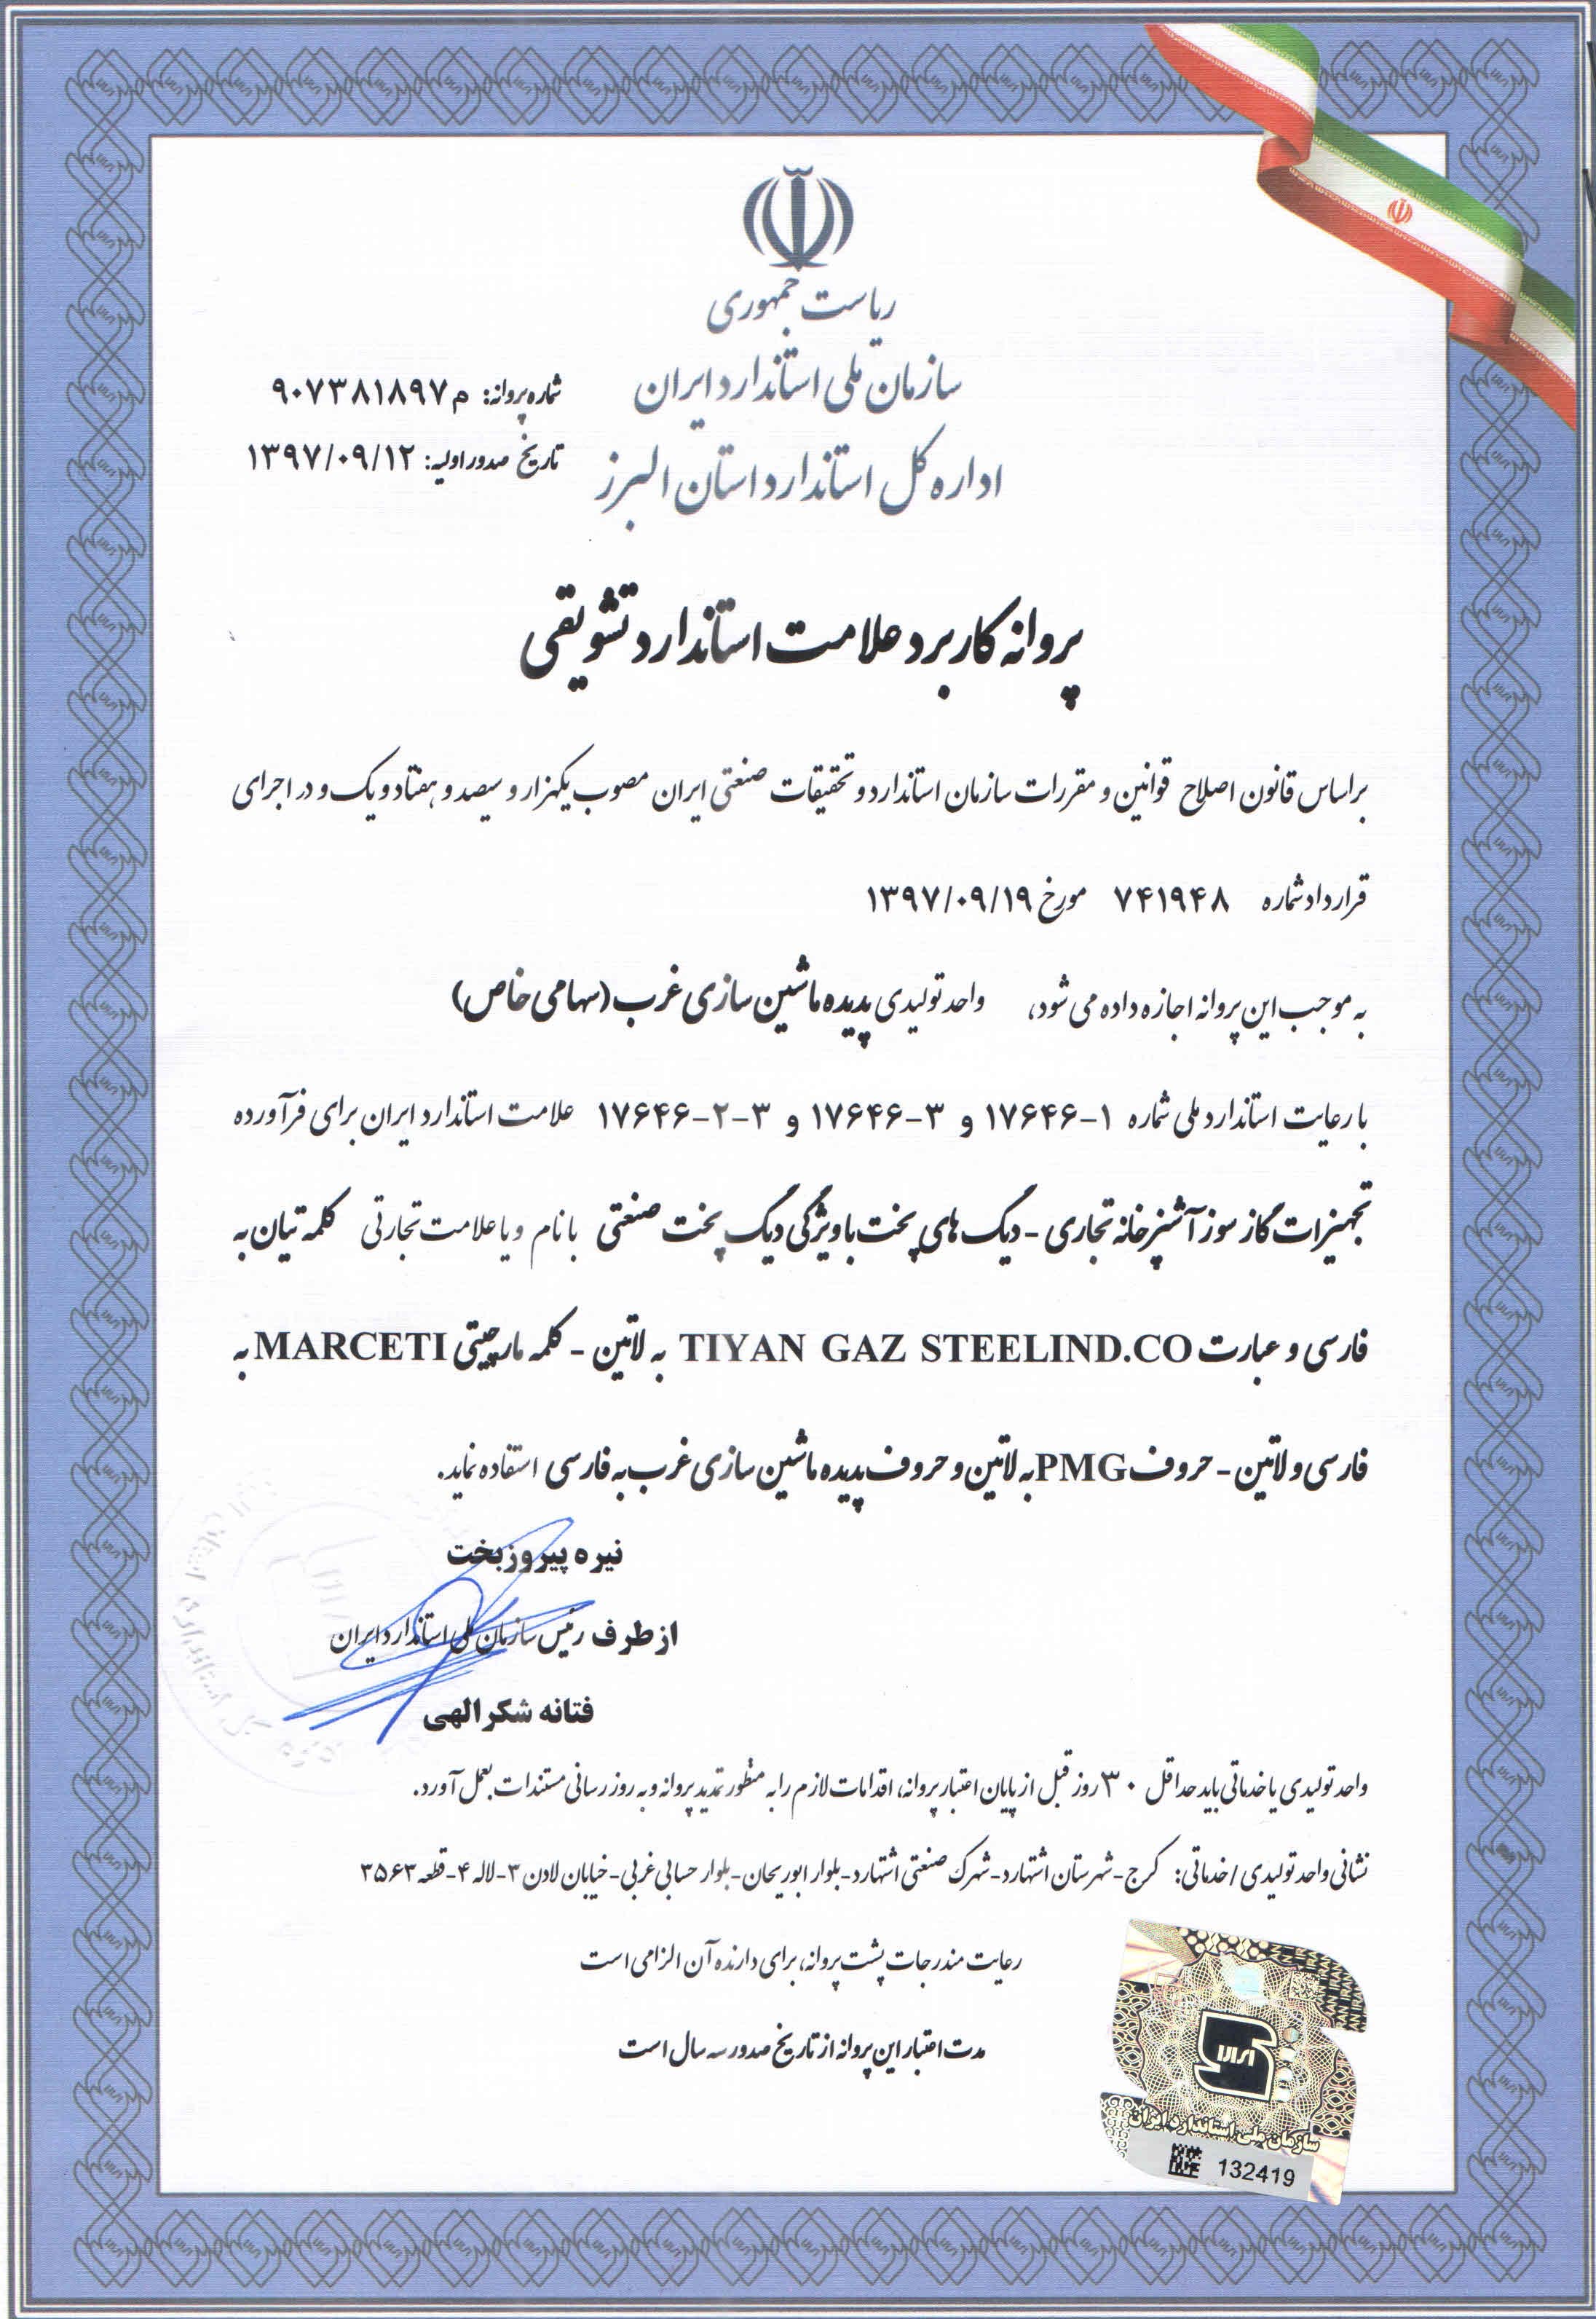 ریاست جمهوری
سازمان ملی استاندارد ایران
اداره کل استاندارد استان البرز
شماره پروانه: م ۹۰۷۳۸۱۸۹۷
تاریخ صدور اولیه: ۱۳۹۷/۰۹/۱۲
پروانه کاربرد علامت استاندارد تشویقی
براساس قانون اصلاح قوانین و مقررات سازمان استاندارد و تحقیقات صنعتی ایران مصوب یکهزار و سیصد و هفتاد و یک و در اجرای
قرارداد شماره ۷۴۱۹۴۸ مورخ ۱۳۹۷/۰۹/۱۹
به موجب این پروانه اجازه داده می شود، واحد تولیدی پدیده ماشین سازی غرب (سهامی خاص)
با رعایت استاندارد ملی شماره ۱-۱۷۶۴۶ و ۳-۱۷۶۴۶ و ۳-۲-۱۷۶۴۶ علامت استاندارد ایران برای فرآورده
تجهیزات گازسوز آشپزخانه تجاری - دیگ های پخت با ویژگی دیگ پخت صنعتی با نام و یا علامت تجارتی کلمه تیان به
فارسی و عبارت TIYAN GAZ STEELIND.CO به لاتین - کلمه مارچیتی MARCETI به
فارسی و لاتین - حروف PMG به لاتین و حروف پدیده ماشین سازی غرب به فارسی استفاده نماید.
نیره پیروزبخت
از طرف رئیس سازمان ملی استاندارد ایران
فتانه شکرالهی
واحد تولیدی یا خدماتی باید حداقل ۳۰ روز قبل از پایان اعتبار پروانه، اقدامات لازم را به منظور تمدید پروانه و به روز رسانی مستندات بعمل آورد.
نشانی واحد تولیدی / خدماتی: کرج - شهرستان اشتهارد - شهرک صنعتی اشتهارد - بلوار ابوریحان - بلوار حسابی غربی - خیابان لادن ۳ - لاله ۴ - قطعه ۳۵۶۳
رعایت مندرجات پشت پروانه، برای دارنده آن الزامی است
مدت اعتبار این پروانه از تاریخ صدور سه سال است
سازمان ملی استاندارد ایران
132419